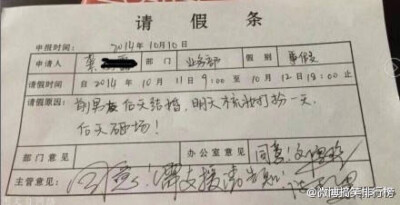 请假条
申报时间: 2014年10月10日
申请人 部门 业务部 假别 事假
请假时间 自2014年10月11日9:00至10月12日18:00止
请假原因: 前男友后天结婚,明天梳洗打扮一天,
后天砸场!
部门意见 办公室意见 同意!
主管意见: 同意!需支援请告知!
@微博搞笑排行榜